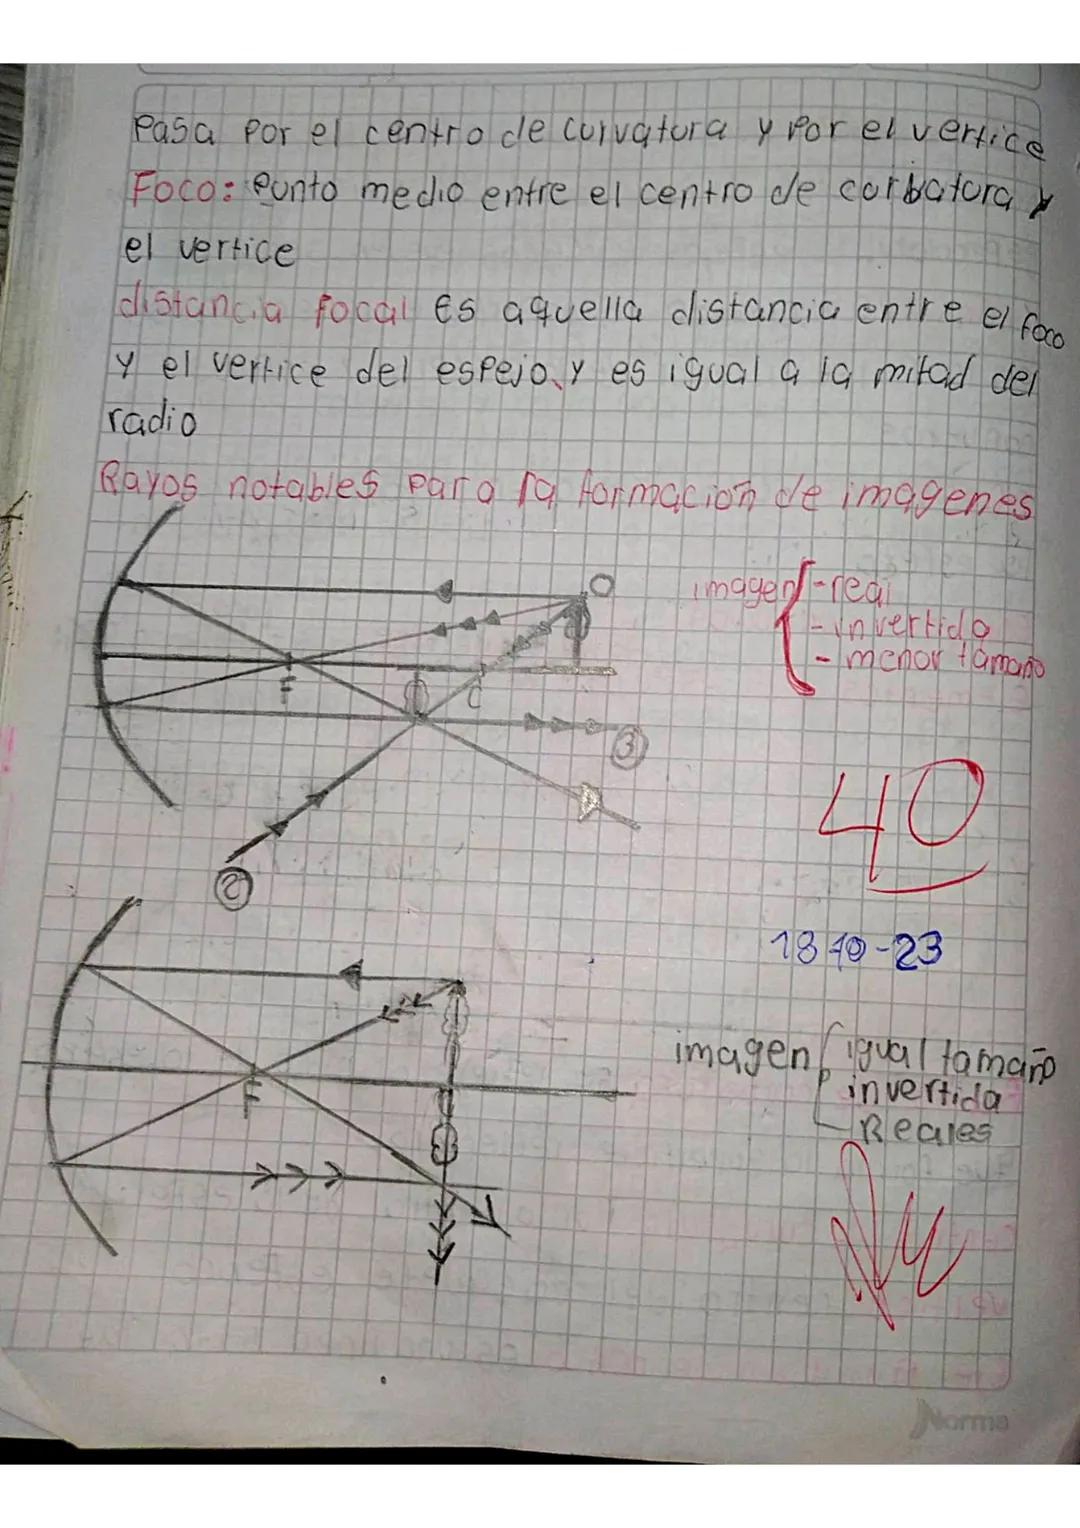 Pasa por el centro de curvatura y por el vertice
Foco: Punto medio entre el centro de curbatura y
el vertice
distancia focal es aquella distancia entre el foco
y el vertice del espejo, y es igual a la mitad del
radio
Rayos notables para la formacion de imagenes
O
imagen - real
- invertida
- menor tamaño
F
C
3
40
2
18-10-23
imagen igual tamaño
invertida
Reales
F
Norma